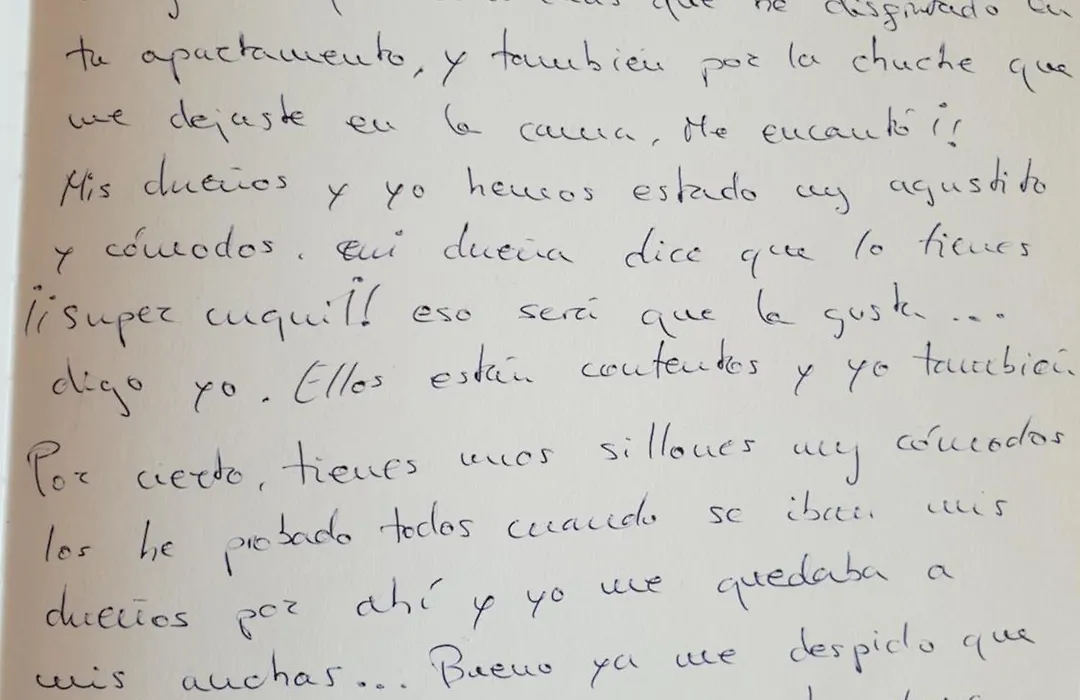 que he disfrutado en
tu apartamento, y también por la chuche que
me dejaste en la cama. Me encantó¡!
Mis dueños y yo hemos estado muy agustito
y cómodos. mi dueña dice que lo tienes
¡¡super cuqui!! eso será que la gusta...
digo yo. Ellos están contentos y yo también.
Por cierto, tienes unos sillones muy cómodos
los he probado todos cuando se iban mis
dueños por ahí y yo me quedaba a
mis anchas... Bueno ya me despido que